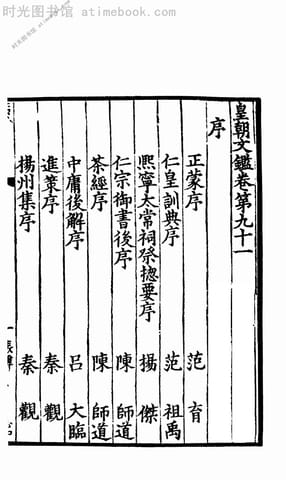 时光图书馆 - atimebook.com
皇朝文鑑卷第九十一
序
正蒙序 范育
仁皇訓典序 范祖禹
熙寧太常祠祭揔要序 楊傑
仁宗御書後序 陳師道
茶經序 陳師道
中庸後解序 呂大臨
進策序 秦觀
揚州集序 秦觀